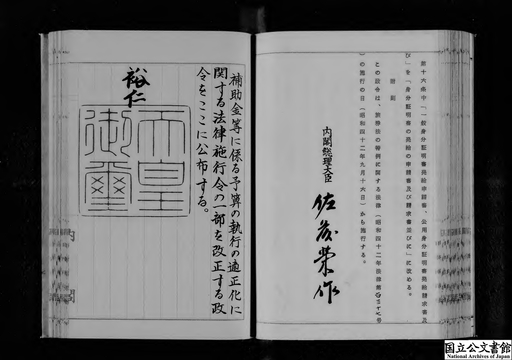 第十六条中「一般身分証明書再給申請書、公用身分証明書再給請求書及
び」を「身分証明書の再給の申請書及び請求書並びに」に改める。
附則
この政令は、旅券法の特例に関する法律(昭和四十二年法律第 号
の施行の日(昭和四十二年九月十六日)から施行する。
内閣総理大臣
佐藤榮作
補助金等に係る予算の執行の適正化に
関する法律施行令の一部を改正する政
令をここに公布する。
裕仁
天皇
御璽
内
国立公文書館
National Archives of Japan